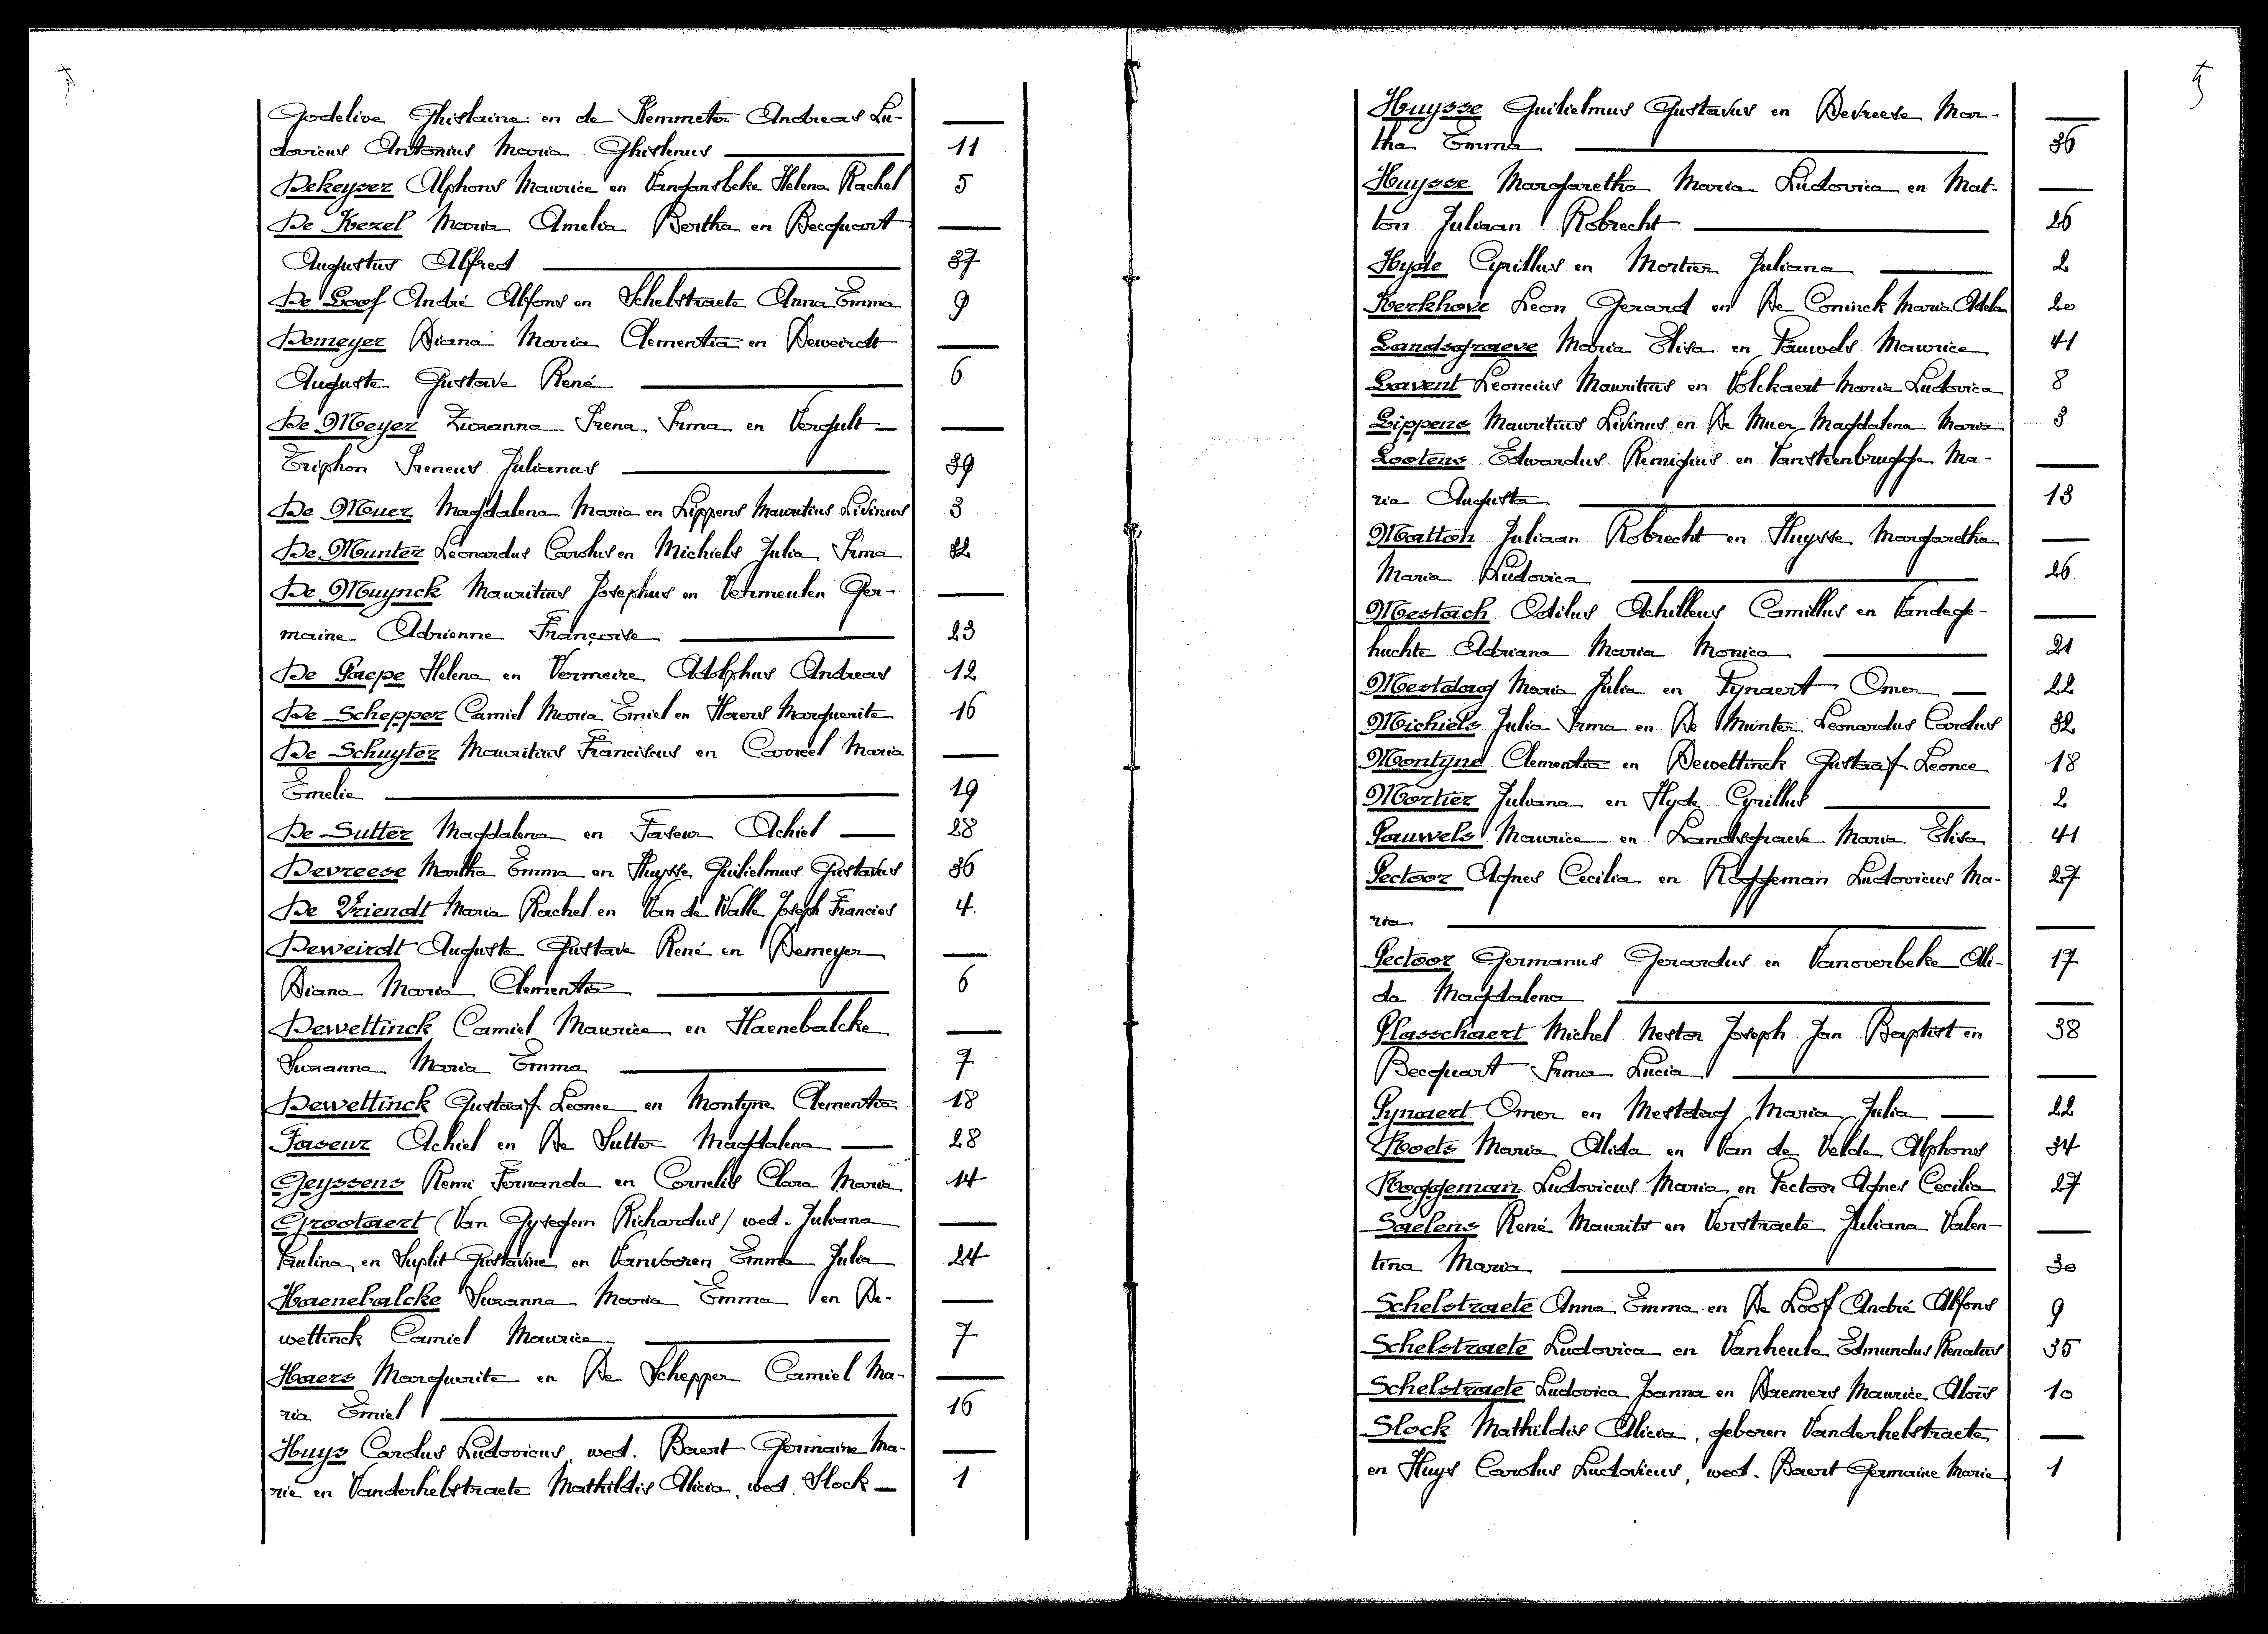 Godelive Ghislaine en de Kemmeter Andreas Lu- —
dovicus Antonius Maria Ghislenus — 11
Dekeyser Alphons Maurice en Vandansbeke Helena Rachel 5
De Kezel Maria Amelia Bertha en Becquart —
Augustus Alfred — 37
De Loof André Alfons en Schelstraete Anna Emma 9
Demeyer Diana Maria Clementia en Deweirdt —
Auguste Gustave René — 6
De Meyer Zuzanna Irena Irma en Vergult —
Triphon Ireneus Julianus — 39
De Muer Magdalena Maria en Lippens Mauritius Livinus 3
De Munter Leonardus Carolus en Michiels Julia Irma 32
De Muynck Mauritius Josephus en Vermeulen Ger- —
maine Adrienne Françoise — 23
De Paepe Helena en Vermeire Adolphus Andreas 12
De Schepper Camiel Maria Emiel en Haers Marguerite 16
De Schuyter Mauritius Franciscus en Carreel Maria —
Emelie — 19
De Sutter Magdalena en Faseur Achiel — 28
Devreese Martha Emma en Huysse Guilielmus Gustavus 36
De Vriendt Maria Rachel en Van de Walle Joseph Francies 4.
Deweirdt Auguste Gustave René en Demeyer —
Diana Maria Clementia — 6
Dewettinck Camiel Maurice en Haenebalcke —
Suzanna Maria Emma — 7
Dewettinck Gustaaf Leonce en Montyne Clementia 18
Faseur Achiel en De Sutter Magdalena — 28
Geyssens Remi Fernanda en Cornelis Clara Maria 14
Grootaert (Van Gyseghem Richardus) wed. Juliana —
Paulina, en Suplit Gustavine en Vanboren Emma Julia 24
Haenebalcke Suzanna Maria Emma en De- —
wettinck Camiel Maurice — 7
Haers Marguerite en De Schepper Camiel Ma- —
ria Emiel — 16
Huys Carolus Ludovicus, wed. Baert Germaine Ma- —
rie en Vanderhelstraete Mathildis Alicia, wed. Slock — 1
Huysse Guilielmus Gustavus en Devreese Mar- —
tha Emma — 36
Huysse Margaretha Maria Ludovica en Mat- —
ton Juliaan Robrecht — 26
Hyde Cyrillus en Mortier Juliana — 2
Kerkhove Leon Gerard en De Coninck Maria Adela 20
Landsgraeve Maria Elisa en Pauwels Maurice 41
Lavent Leoncius Mauritius en Volckaert Maria Ludovica 8
Lippens Mauritius Livinus en De Muer Magdalena Maria 3
Lootens Edwardus Remigius en Vansteenbrugghe Ma- —
ria Augusta — 13
Matton Juliaan Robrecht en Huysse Margaretha —
Maria Ludovica — 26
Mestach Odilus Achilleus Camillus en Vandege- —
huchte Adriana Maria Monica — 21
Mestdag Maria Julia en Pynaert Omer — 22
Michiels Julia Irma en De Munter Leonardus Carolus 32
Montyne Clementia en Dewettinck Gustaaf Leonce 18
Mortier Juliana en Hyde Cyrillus — 2
Pauwels Maurice en Landsgraeve Maria Elisa 41
Pectoor Agnes Cecilia en Roggeman Ludovicus Ma- 27
ria — —
Pectoor Germanus Gerardus en Vanoverbeke Ali- 17
da Magdalena — —
Plasschaert Michel Nestor Joseph Jan Baptist en 38
Becquart Irma Lucia — —
Pynaert Omer en Mestdag Maria Julia — 22
Roets Maria Alida en Van de Velde Alphons 34
Roggeman Ludovicus Maria en Pectoor Agnes Cecilia 27
Saelens René Maurits en Verstraete Juliana Valen- —
tina Maria — 30
Schelstraete Anna Emma en De Loof André Alfons 9
Schelstraete Ludovica en Vanheule Edmundus Renatus 35
Schelstraete Ludovica Joanna en Daemers Maurice Aloïs 10
Slock Mathildis Alicia, geboren Vanderhelstraete —
en Huys Carolus Ludovicus, wed. Baert Germaine Marie 1